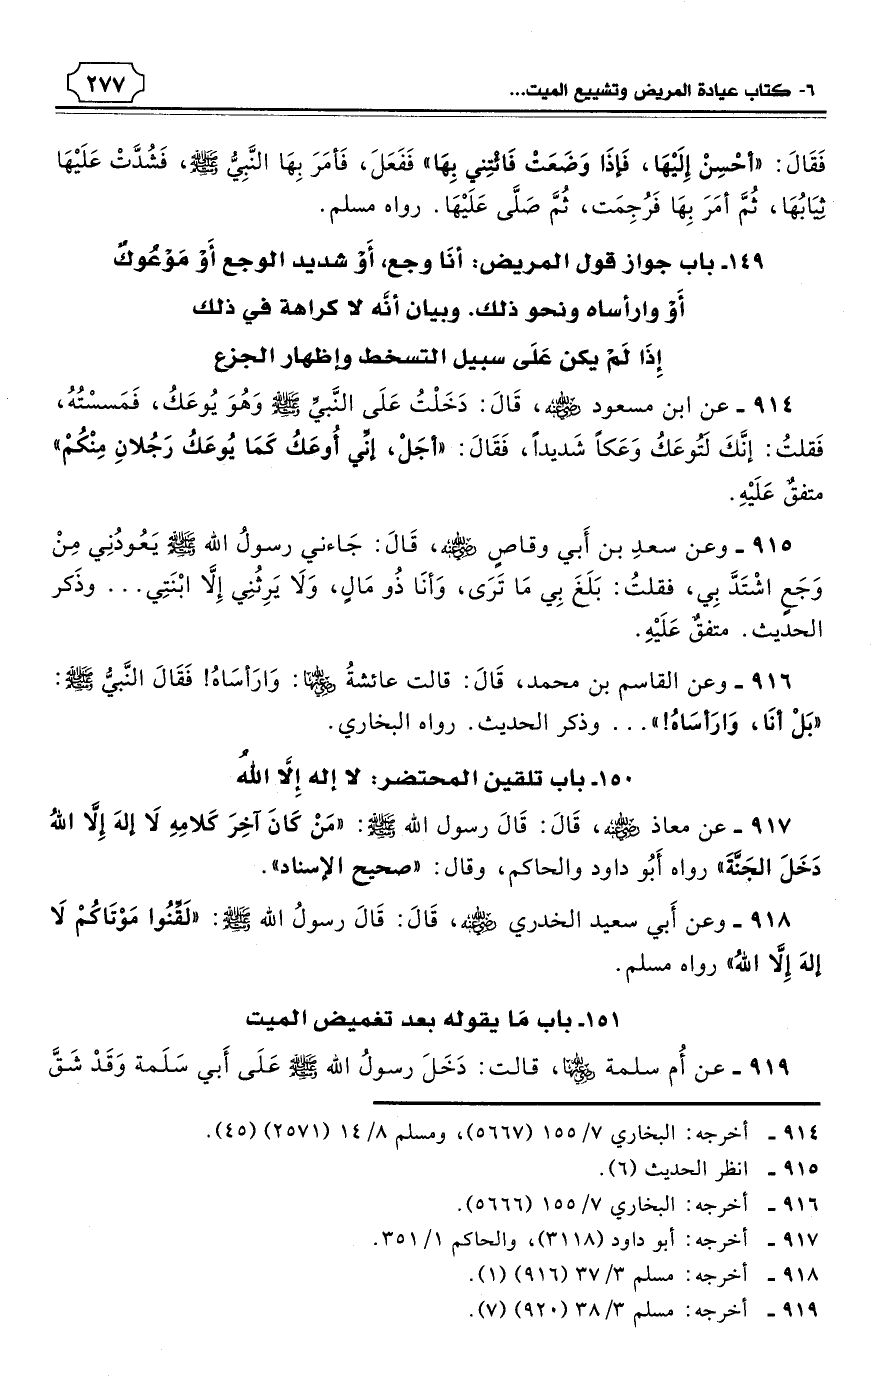 ٦- كتاب عيادة المريض وتشييع الميت...
٢٧٧
فَقَالَ: «أحْسِنْ إِلَيْهَا، فَإذَا وَضَعَتْ فَائْتِني بِهَا» فَفَعَلَ، فَأمَرَ بِهَا النَّبيُّ ﷺ، فَشُدَّتْ عَلَيْهَا
ثِيَابُهَا، ثُمَّ أمَرَ بِهَا فَرُجِمَت، ثُمَّ صَلَّى عَلَيْهَا. رواه مسلم.
١٤٩ـ باب جواز قول المريض: أنَا وجع، أَوْ شديد الوجع أَوْ مَوْعُوكٌ
أَوْ وارأساه ونحو ذلك. وبيان أنَّه لا كراهة في ذلك
إِذَا لَمْ يكن عَلَى سبيل التسخط وإظهار الجزع
٩١٤ ـ عن ابن مسعود ﵁، قَالَ: دَخَلْتُ عَلَى النَّبيِّ ﷺ وَهُوَ يُوعَكُ، فَمَسسْتُهُ،
فَقلتُ: إنَّكَ لَتُوعَكُ وَعَكاً شَديداً، فَقَالَ: «أجَلْ، إنِّي أُوعَكُ كَمَا يُوعَكُ رَجُلانِ مِنْكُمْ»
متفقٌ عَلَيْهِ.
٩١٥ ـ وعن سعدِ بن أَبي وقاصٍ ﵁، قَالَ: جَاءني رسولُ الله ﷺ يَعُودُنِي مِنْ
وَجَعٍ اشْتَدَّ بِي، فقلتُ: بَلَغَ بِي مَا تَرَى، وَأنَا ذُو مَالٍ، وَلَا يَرِثُنِي إِلَّا ابْنَتِي... وذَكر
الحديث. متفقٌ عَلَيْهِ.
٩١٦ ـ وعن القاسم بن محمد، قَالَ: قالت عائشةُ ﵂: وَارَأسَاهُ! فَقَالَ النَّبيُّ ﷺ:
«بَلْ أنَا، وَارَأسَاهُ!»... وذكر الحديث. رواه البخاري.
١٥٠ـ باب تلقين المحتضر: لا إله إِلَّا اللهُ
٩١٧ ـ عن معاذ ﵁، قَالَ: قَالَ رسول الله ﷺ: «مَنْ كَانَ آخِرَ كَلامِهِ لَا إلهَ إِلَّا اللهُ
دَخَلَ الجَنَّةَ» رواه أَبُو داود والحاكم، وقال: «صحيح الإسناد».
٩١٨ ـ وعن أَبي سعيد الخدري ﵁، قَالَ: قَالَ رسولُ الله ﷺ: «لَقِّنُوا مَوْتَاكُمْ لَا
إلهَ إِلَّا اللهُ» رواه مسلم.
١٥١ـ باب مَا يقوله بعد تغميض الميت
٩١٩ ـ عن أُم سلمة ﵂، قالت: دَخَلَ رسولُ الله ﷺ عَلَى أَبي سَلَمة وَقَدْ شَقَّ
٩١٤ ـ أخرجه: البخاري ٧/ ١٥٥ (٥٦٦٧)، ومسلم ٨/ ١٤ (٢٥٧١) (٤٥).
٩١٥ ـ انظر الحديث (٦).
٩١٦ ـ أخرجه: البخاري ٧/ ١٥٥ (٥٦٦٦).
٩١٧ ـ أخرجه: أبو داود (٣١١٨)، والحاكم ١/ ٣٥١.
٩١٨ ـ أخرجه: مسلم ٣/ ٣٧ (٩١٦) (١).
٩١٩ ـ أخرجه: مسلم ٣/ ٣٨ (٩٢٠) (٧).